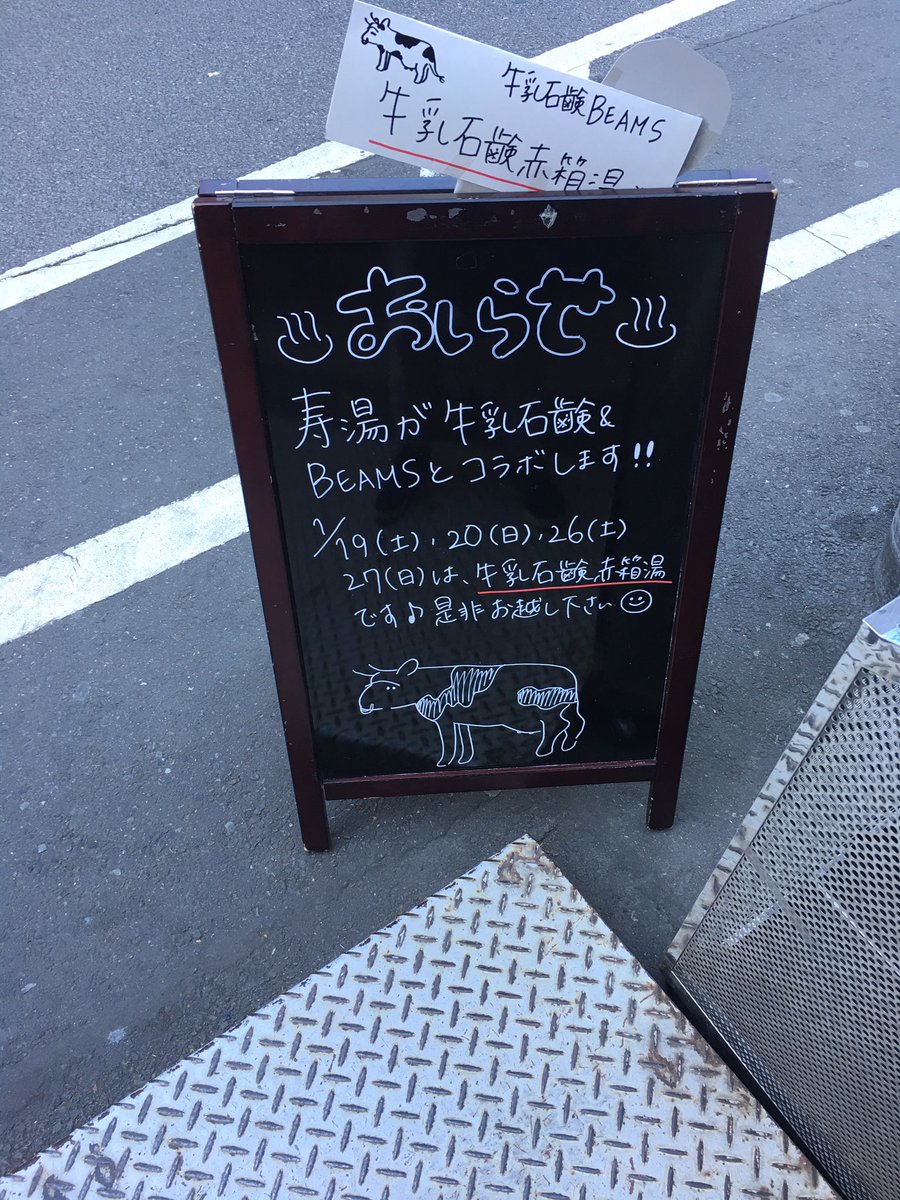 牛乳石鹸BEAMS
牛乳石鹸赤箱湯
♨おしらせ♨
寿湯が牛乳石鹸&
BEAMSとコラボします!!
1/19(土)、20(日)、26(土)
27(日)は、牛乳石鹸赤箱湯
です♪是非お越し下さい☺